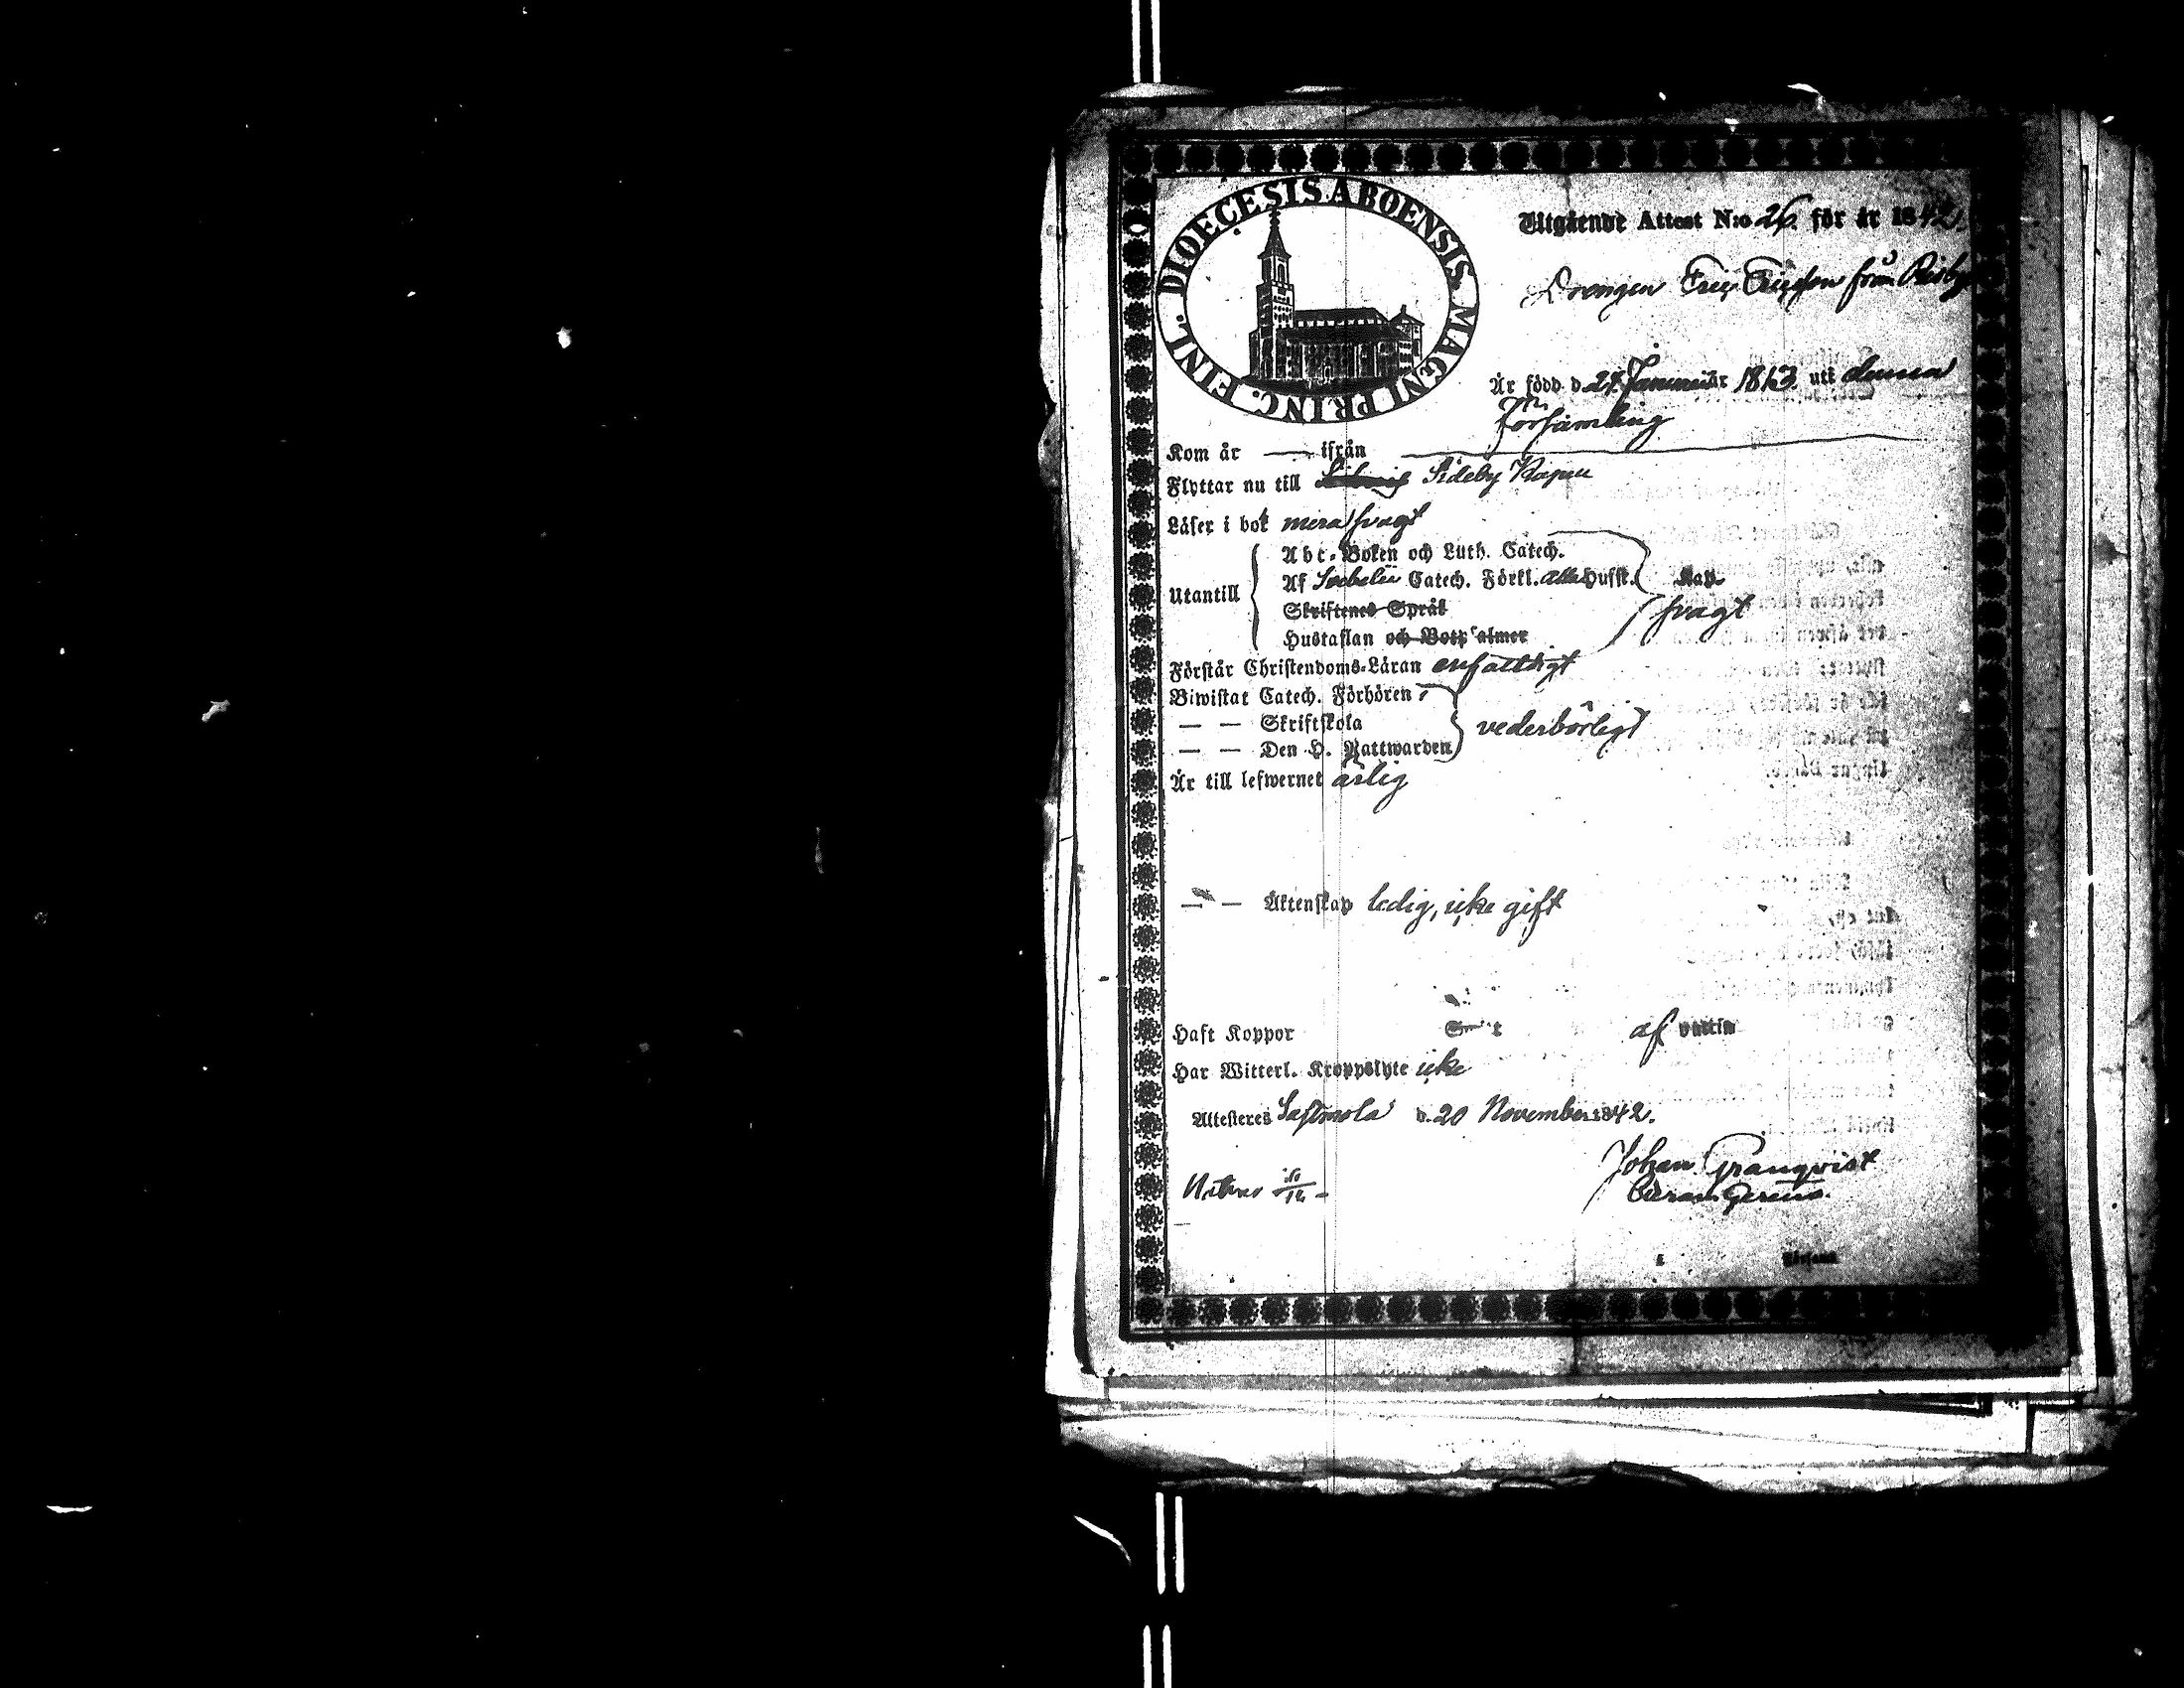 DIOECESIS ABOENSIS. MAGNI PRINC. FINL.
Utgående Attest N:o 26. för år 1842.
Drengen Eric Ericsson från
Är född d. 27. Januari år 1813. uti denna
Församling
Kom år — ifrån —
Flyttar nu till Sideby Kapell
Läser i bok mera svagt
Utantill
Abc-Boken och Luth. Catech.
Af Sebelii Catech. Förkl. alla Hufst.
Skriftenes Språk
Hustaflan och Botpsalmer
svagt
Förstår Christendoms-Läran enfaldigt
Biwistat Catech. Förhören
— — Skriftskola
— — Den H. Nattwarden
vederbörligt
Är till lefwernet ärlig
— — Äktenskap ledig, icke gift
Haft Koppor af vaccin
Har Witterl. Kroppslyte icke
Attesteras Sastmola d. 20 November 1842.
Johan Granqvist
Curam Gerens.
Församl.